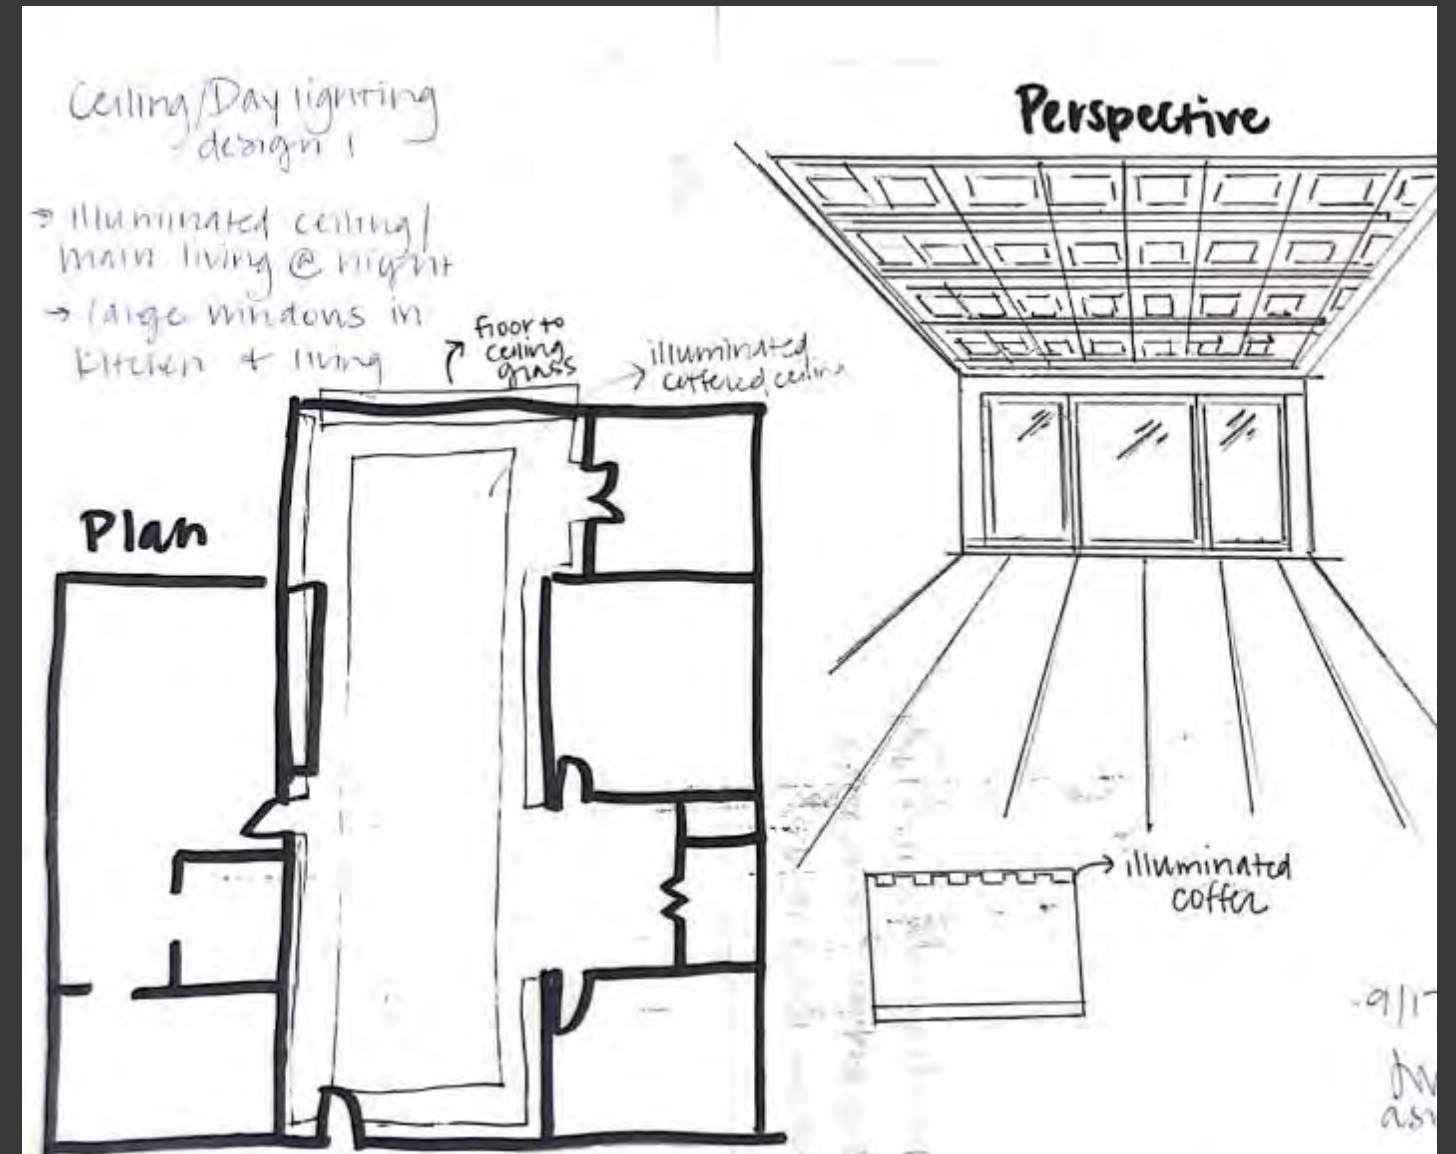 Ceiling/Daylighting
design 1
→ illuminated ceiling/
main living @ night
→ large windows in
kitchen + living
floor to
ceiling
glass
illuminated
coffered ceiling
Plan
Perspective
illuminated
coffer
9/1